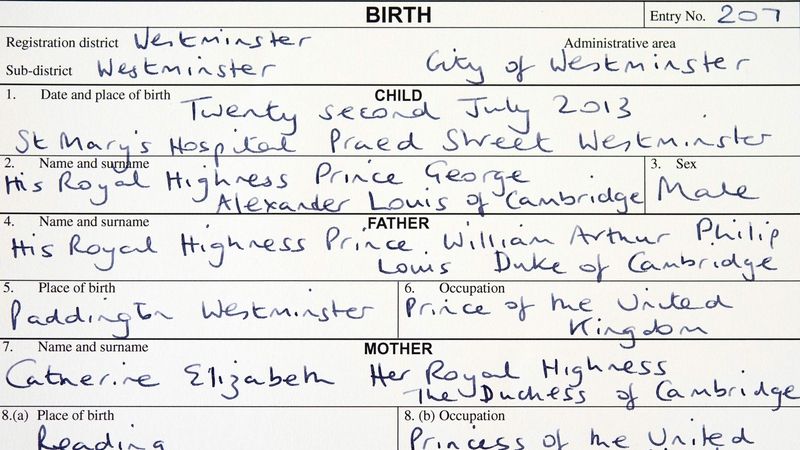 BIRTH Entry No. 207
Registration district Westminster Administrative area
Sub-district Westminster City of Westminster
1. Date and place of birth CHILD
Twenty second July 2013
St Mary's Hospital Praed Street Westminster
2. Name and surname 3. Sex
His Royal Highness Prince George
Alexander Louis of Cambridge Male
4. Name and surname FATHER
His Royal Highness Prince William Arthur Philip
Louis Duke of Cambridge
5. Place of birth 6. Occupation
Paddington Westminster Prince of the United
Kingdom
7. Name and surname MOTHER
Catherine Elizabeth Her Royal Highness
The Duchess of Cambridge
8.(a) Place of birth 8. (b) Occupation
Reading Princess of the United